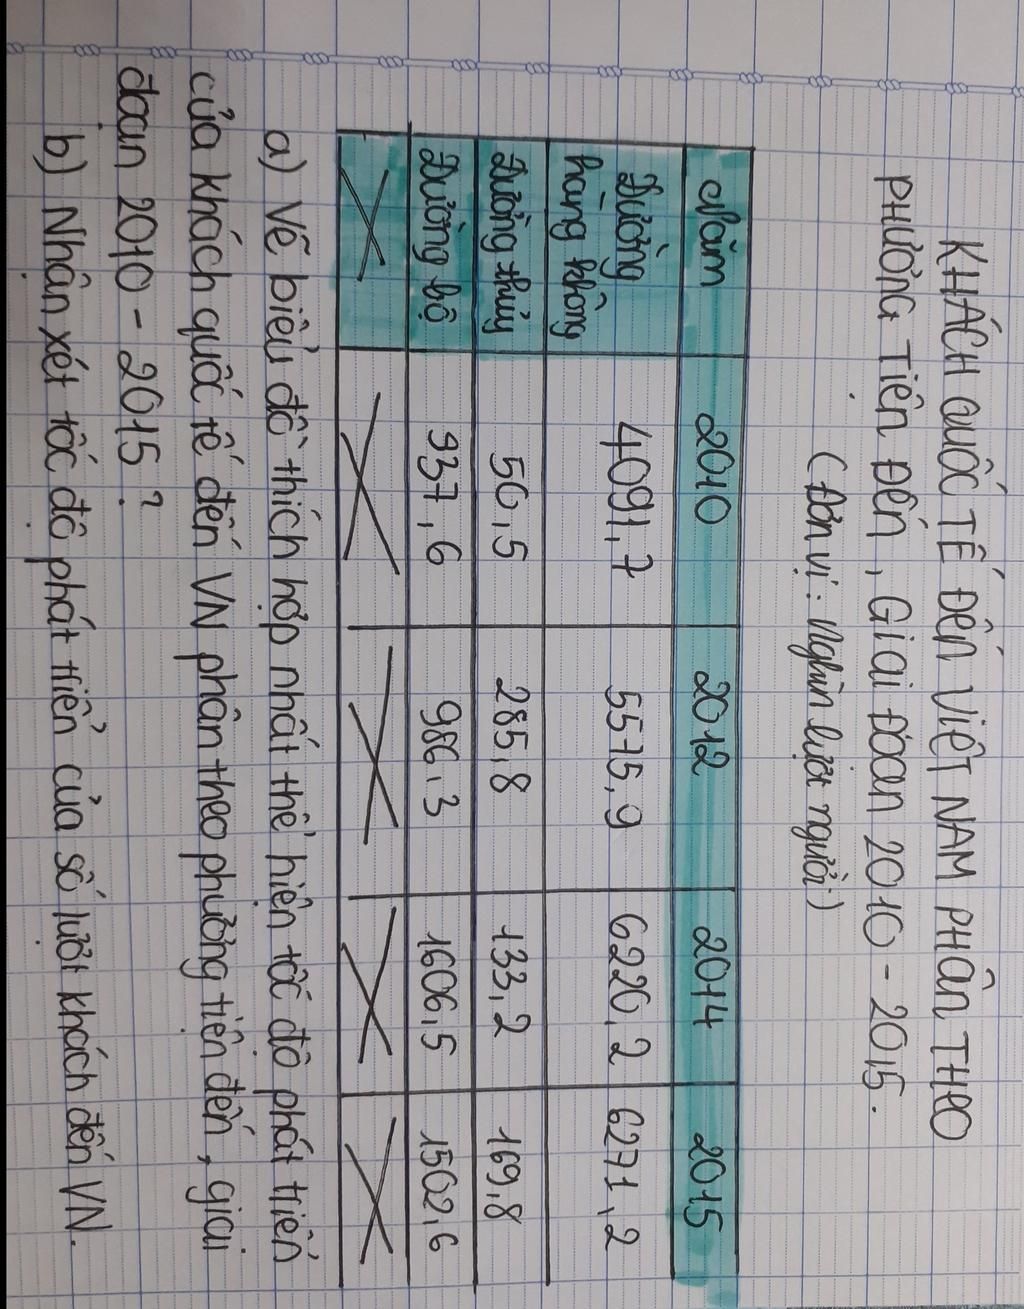 KHÁCH QUỐC TẾ ĐẾN VIỆT NAM PHÂN THEO
PHƯƠNG TIỆN ĐẾN, GIAI ĐOẠN 2010 - 2015.
(Đơn vị: Nghìn lượt người)
Năm 2010 2012 2014 2015
Đường hàng không 4091,7 5575,9 6220,2 6271,2
Đường thủy 50,5 285,8 133,2 169,8
Đường bộ 937,6 986,3 1606,5 1502,6
a) Vẽ biểu đồ thích hợp nhất thể hiện tốc độ phát triển
của khách quốc tế đến VN phân theo phương tiện đến, giai
đoạn 2010 - 2015?
b) Nhận xét tốc độ phát triển của số lượt khách đến VN.